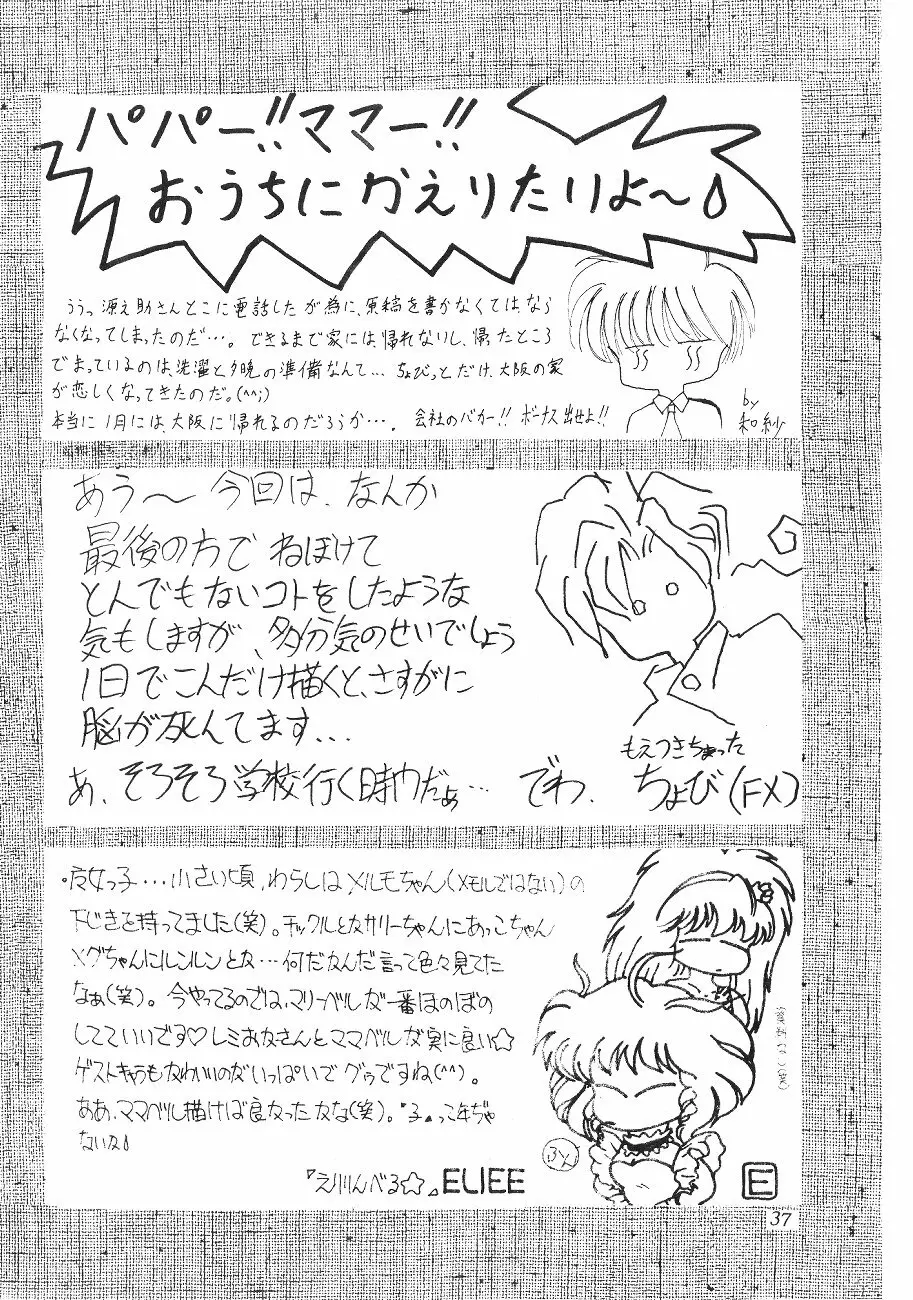 パパー!!ママー!!
おうちにかえりたいよ〜
うぅっ源之助さんとこに電話したが為に、原稿を書かなくてはなら
なくなってしまったのだ…。できるまで家には帰れないし、帰ったところ
でまっているのは、洗濯と夕晩の準備なんて…ちょびっとだけ、大阪の家
が恋しくなってきたのだ。(^^;)
本当に1月には、大阪に帰れるのだろうか…。会社のバカー!!ボーナス出せよ!!
by
和紗
あう〜今回は、なんか
最後の方でねぼけて
とんでもないコトをしたような
気もしますが、多分気のせいでしょう
1日でこんだけ描くと、さすがに
脳が死んでます…
あ、そろそろ学校行く時間だぁ…
でわ、
もえつきちまった
ちょび(FX)
・魔女っ子…小さい頃、わらしはメルモちゃん(メモルではない)の
下じきを持ってました(笑)。チックルとかサリーちゃんにあっこちゃん
メグちゃんにルンルンとか…何だかんだ言って色々見てた
なぁ(笑)。今やってるのでは、マリーベルが一番ほのぼの
してていいです♡レミおばさんとママベルが実に良い☆
ゲストキャラもかわいいのがいっぱいでグゥですね(^^)。
ああ、ママベル描けば良かったかな(笑)。"子"って年ぢゃ
ないな♪
『えりりんべる☆』ELIEE
E
37